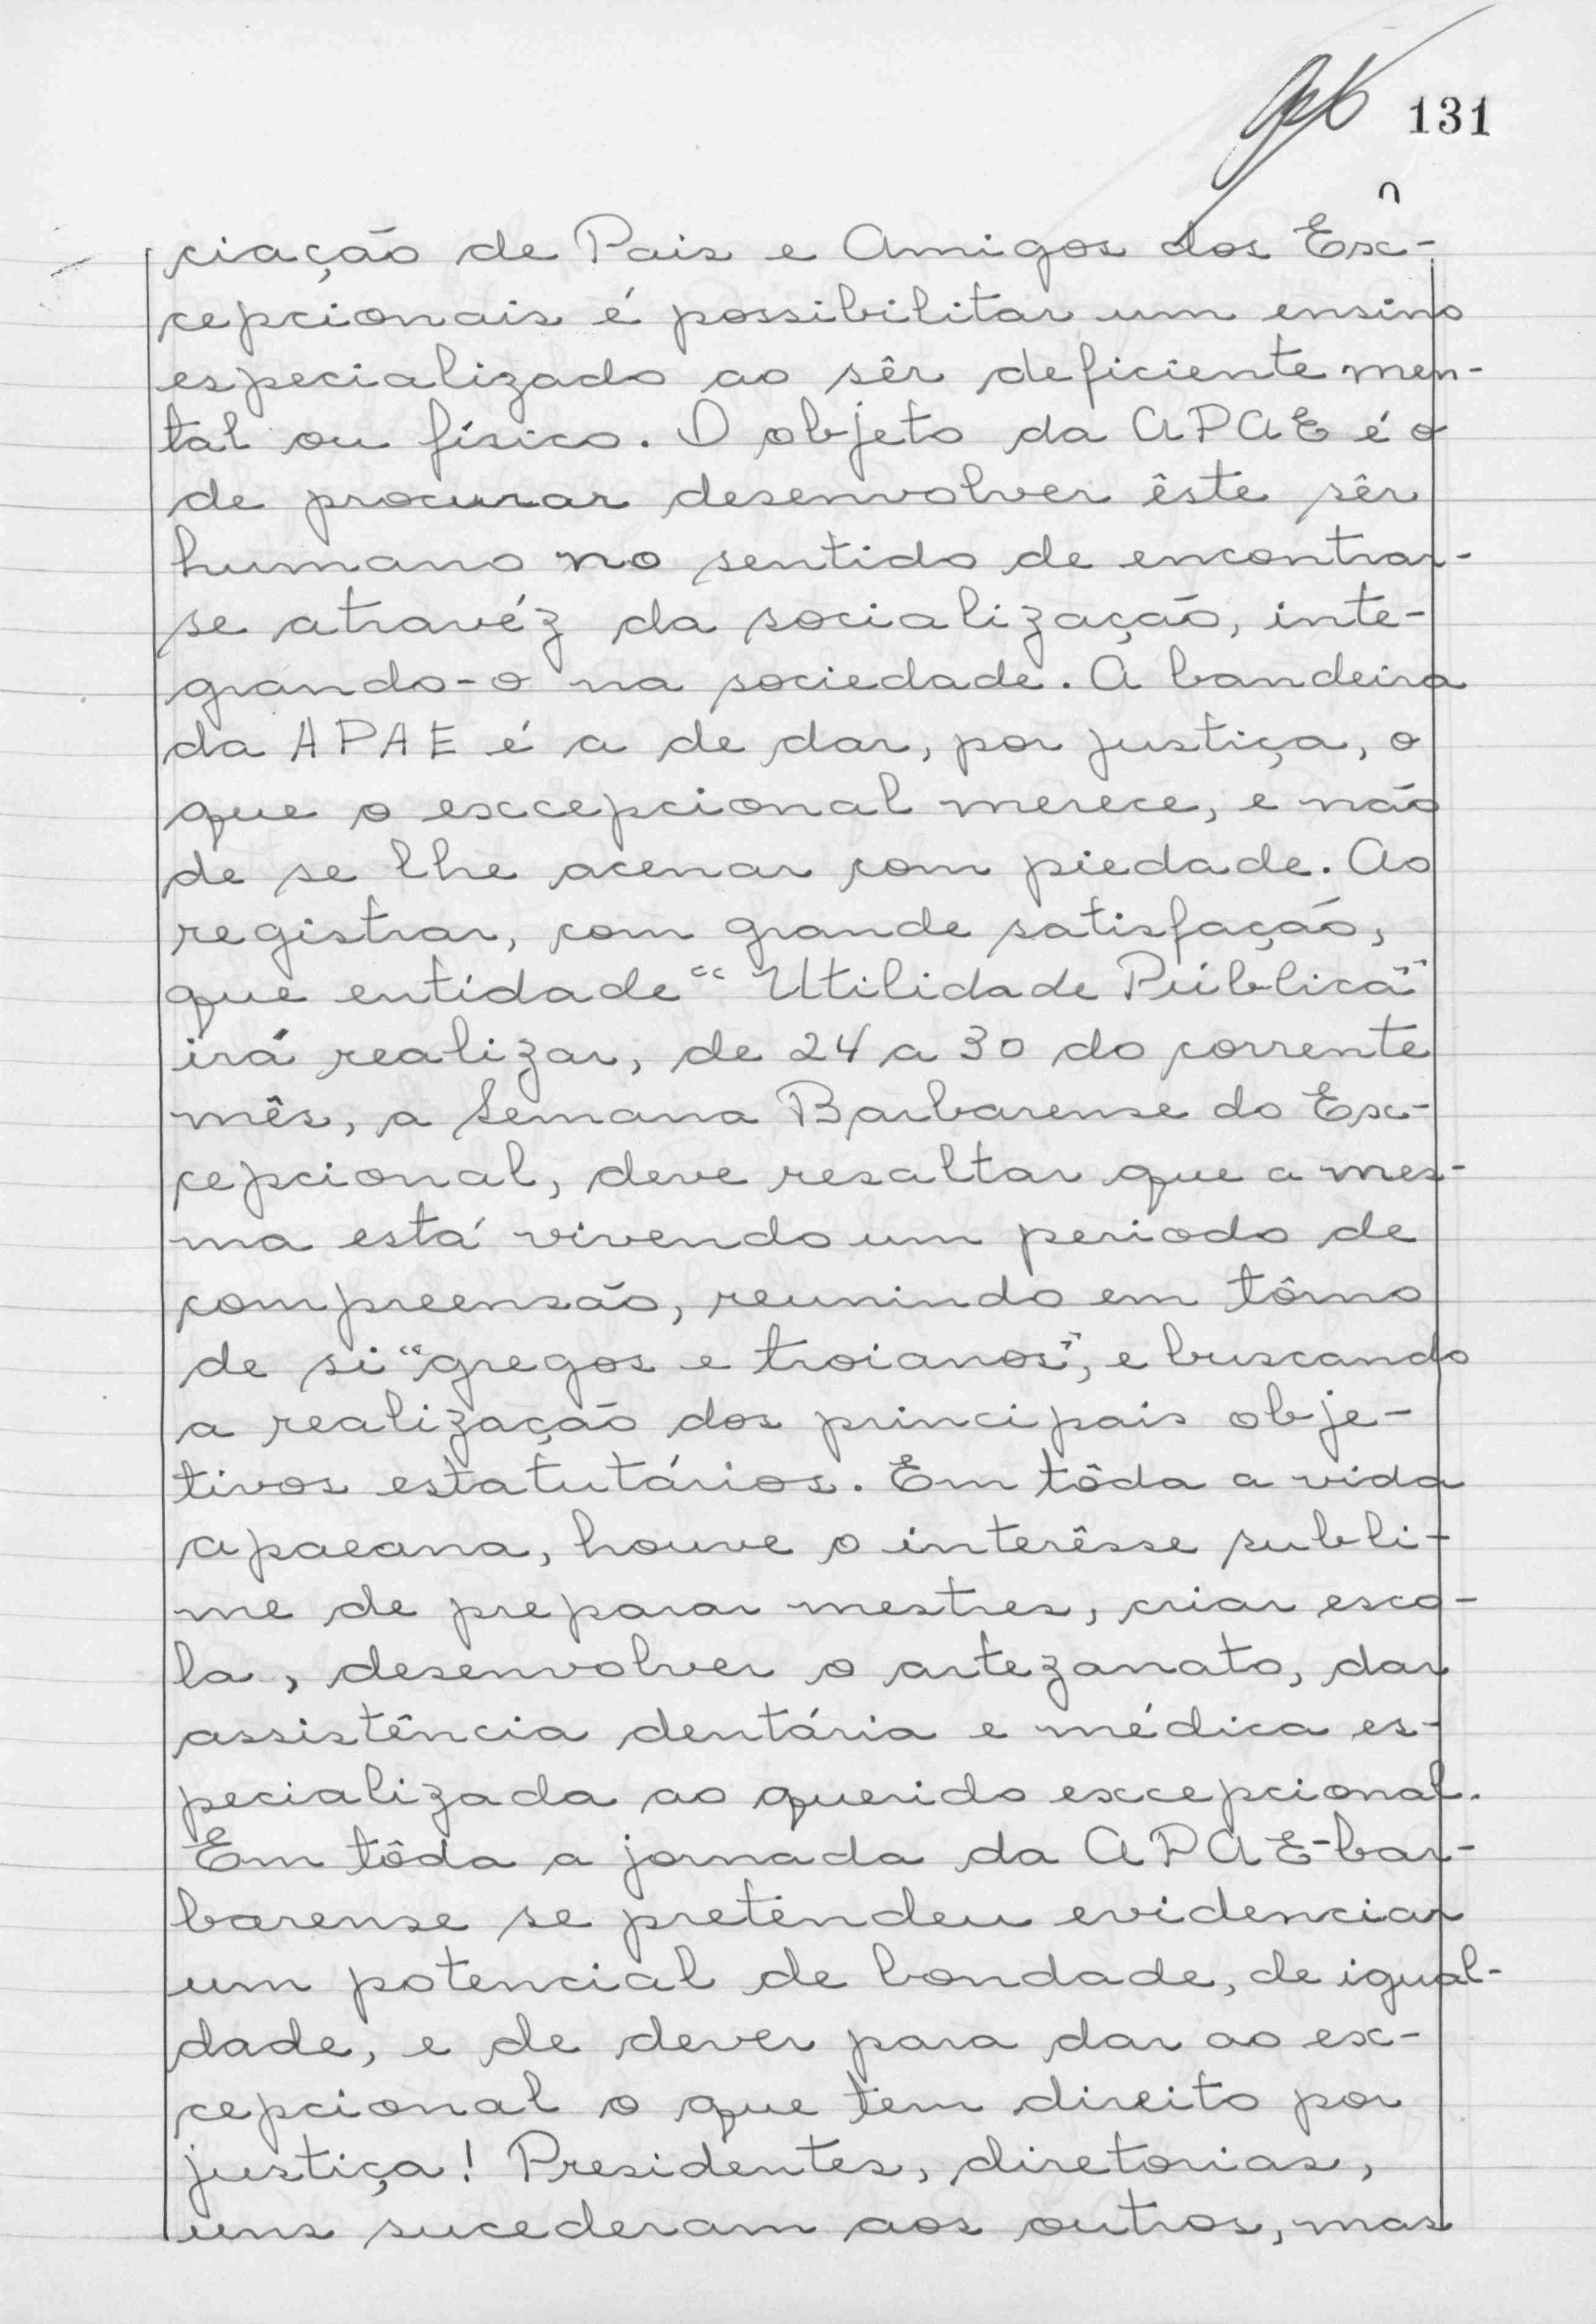 131
ciação de Pais e Amigos dos Ex-
cepcionais é possibilitar um ensino
especializado ao sêr deficiente men-
tal ou físico. O objeto da APAE é o
de procurar desenvolver êste sêr
humano no sentido de encontrar-
se atravéz da socialização, inte-
grando-o na sociedade. A bandeira
da APAE é a de dar, por justiça, o
que o excepcional merece, e não
de se lhe acenar com piedade. Ao
registrar, com grande satisfação,
que entidade "Utilidade Pública"
irá realizar, de 24 a 30 do corrente
mês, a Semana Barbarense do Ex-
cepcional, deve resaltar que a mes-
ma está vivendo um periodo de
compreensão, reunindo em tôrno
de si "gregos e troianos", e buscando
a realização dos principais obje-
tivos estatutários. Em tôda a vida
apaeana, houve o interêsse subli-
me de preparar mestres, criar esco-
la, desenvolver o artezanato, dar
assistência dentária e médica es-
pecializada ao querido excepcional.
Em tôda a jornada da APAE-bar-
barense se pretendeu evidenciar
um potencial de bondade, de igual-
dade, e de dever para dar ao ex-
cepcional o que tem direito por
justiça! Presidentes, diretorias,
uns sucederam aos outros, mas